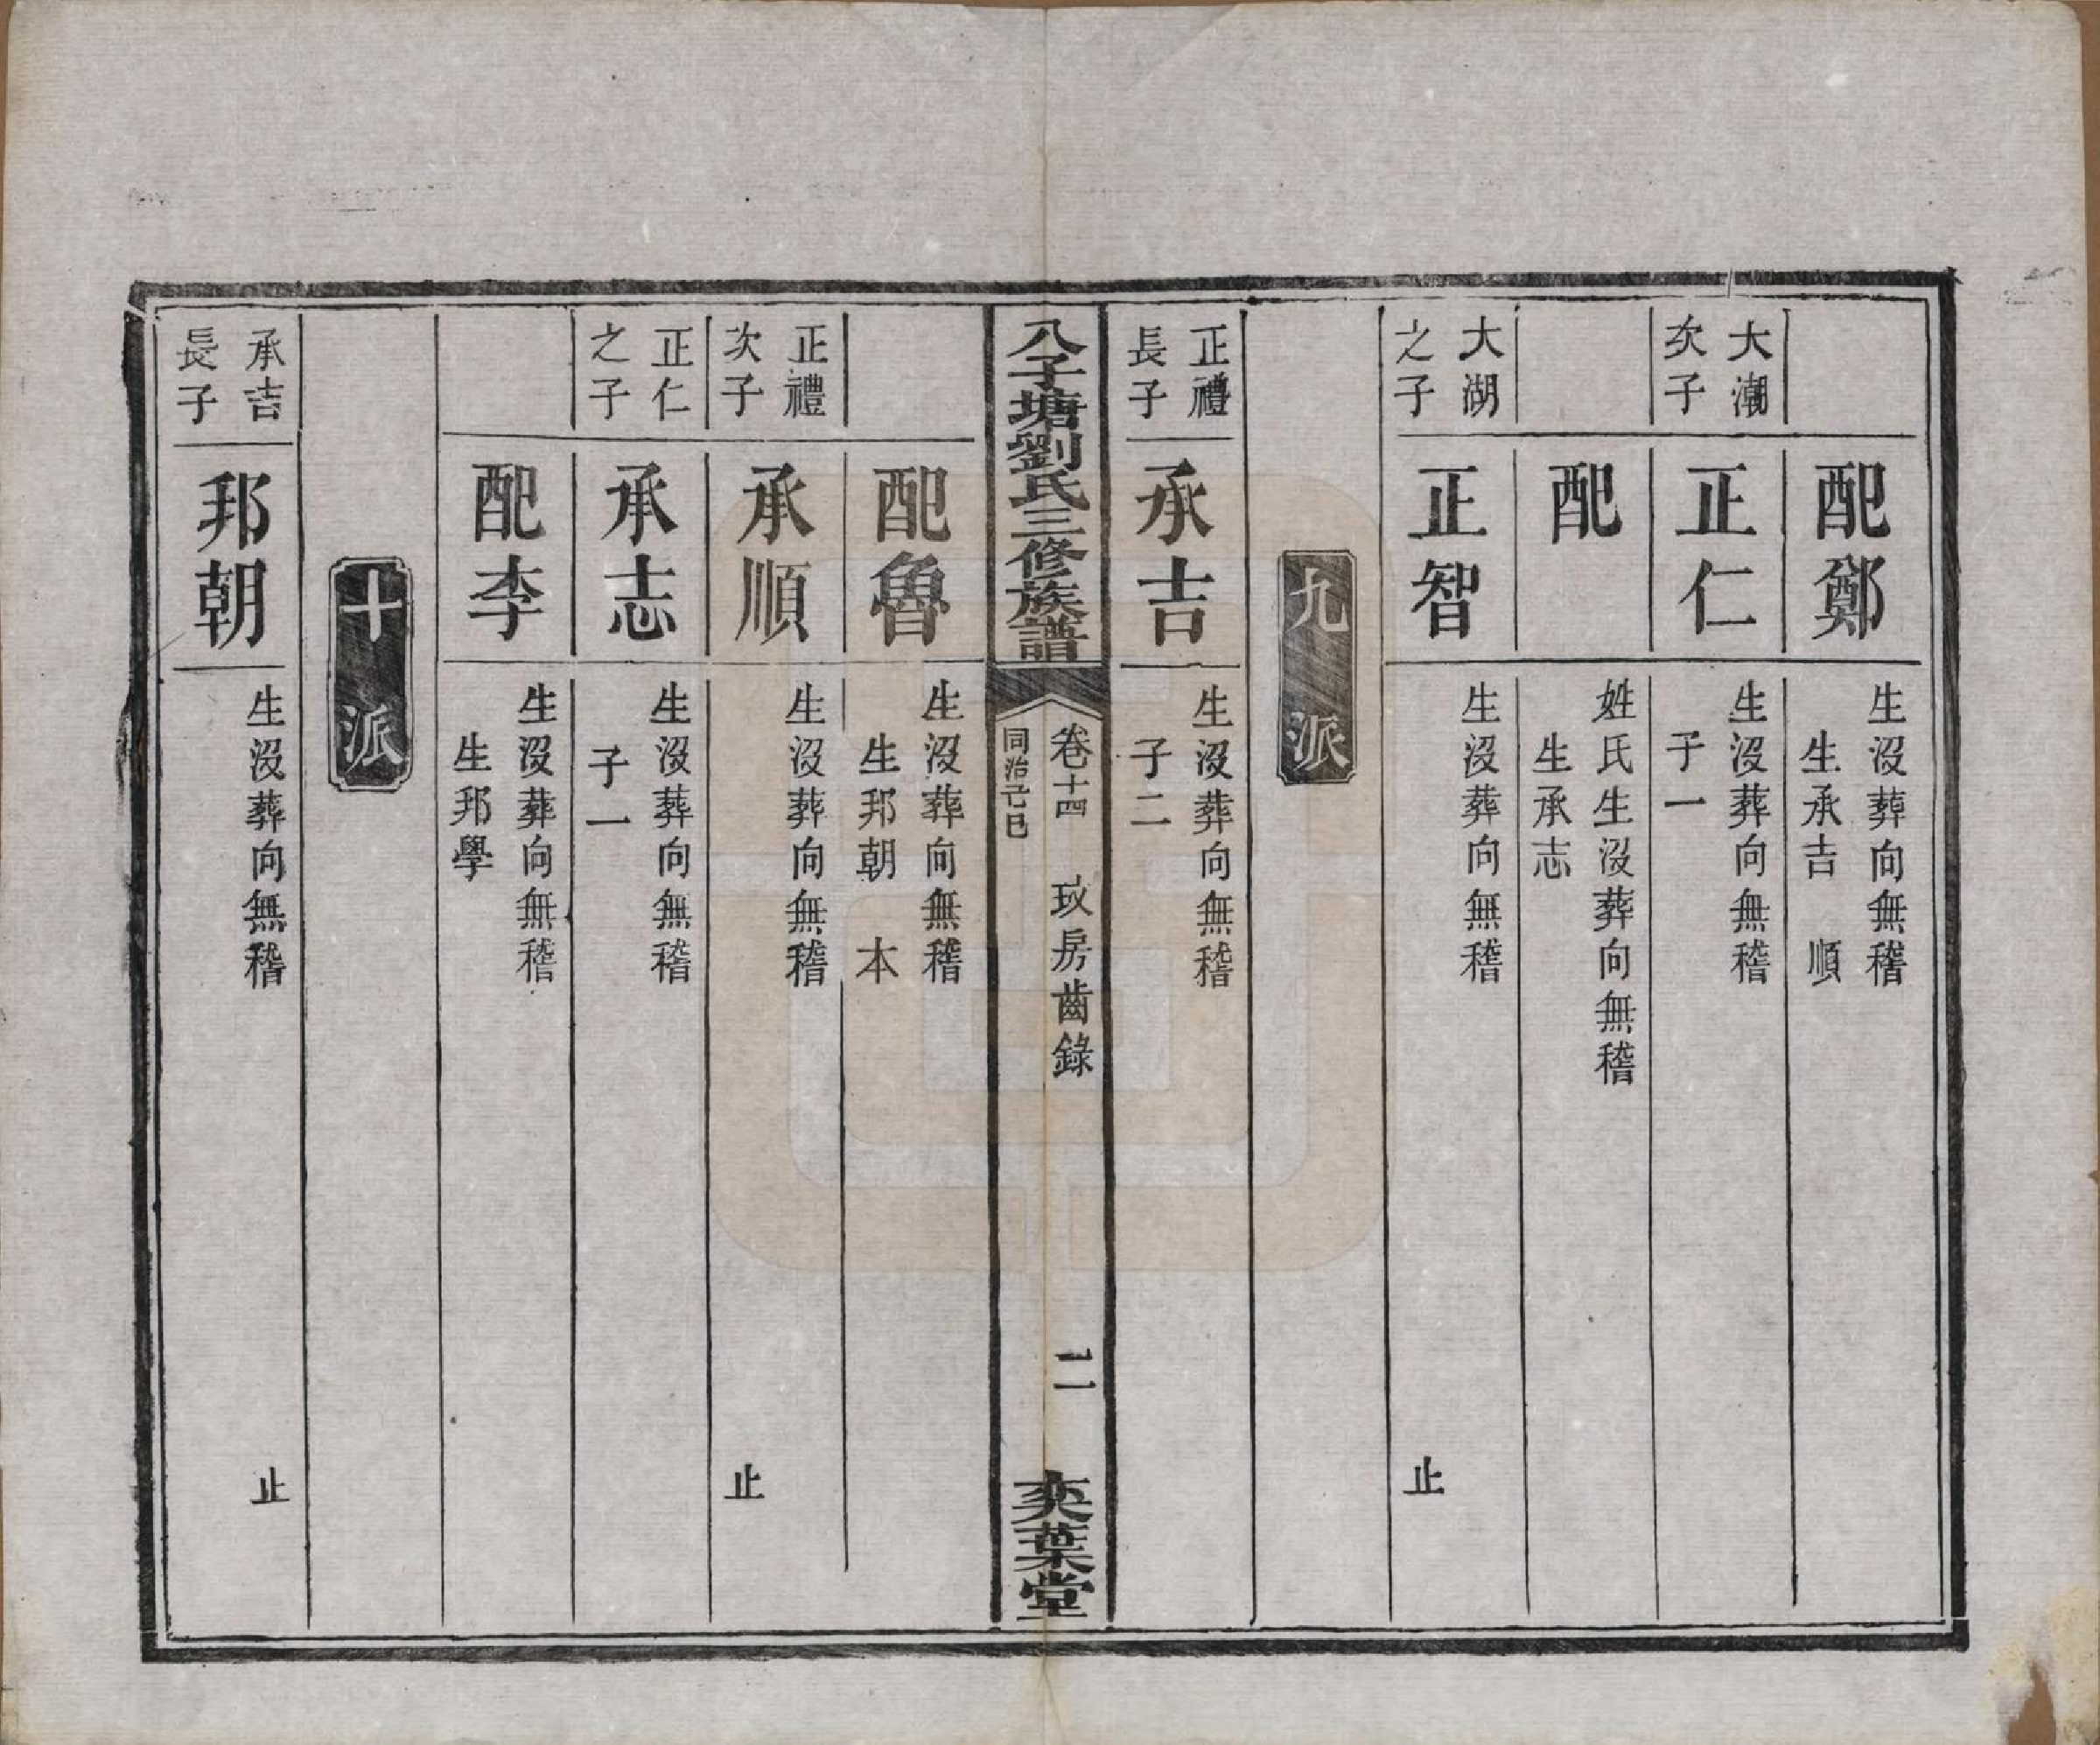 配鄭
生沒葬向無稽
生承吉　順
大潮
次子
正仁
生沒葬向無稽
子一
配
姓氏生沒葬向無稽
生承志
大湖
之子
正智
生沒葬向無稽
止
九派
正禮
長子
承吉
生沒葬向無稽
子二
八子塘劉氏三修族譜
卷十四　玫房齒錄
同治己巳
二
奕葉堂
配魯
生沒葬向無稽
生邦朝　本
正禮
次子
承順
生沒葬向無稽
止
正仁
之子
承志
生沒葬向無稽
子一
配李
生沒葬向無稽
生邦學
十派
承吉
長子
邦朝
生沒葬向無稽
止